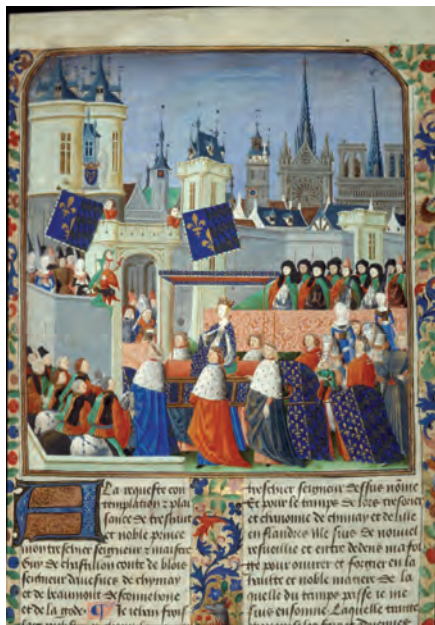 A la requeste con
templation & plai
sance de treshault
et noble prince
mon treschier seigneur & maistre
Guy de chastillon conte de blois
seigneur davesnes de chymay
et de beaumont de sconnehone
et de la gode. Je Jehan frois
treschier seigneur dessus nōme
Et pour le temps de lors tresorier
et chanonne de chimay et de lille
en flandres Me suis de nouvel
resveillie et entre dedens ma for
ge pour ouvrer et forgier en la
haulte et noble matiere de la
quelle du temps passe je me
suis ensonnie. Laquelle traitte